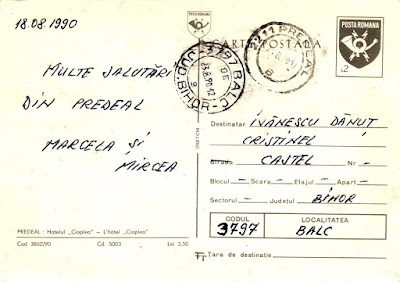 18.08 1990
CARTE POSTALĂ
POSTA ROMANA
L2
3797 BALC
JUD. BIHOR
2211 PREDEAL
MULTE SALUTĂRI
DIN PREDEAL
MARCELA ȘI
MIRCEA
Destinatar IVĂNESCU DĂNUȚ
CRISTINEL
Strada CASTEL Nr -
Blocul - Scara - Etajul - Apart -
Sectorul - Județul BIHOR
CODUL LOCALITATEA
3797 BALC
Țara de destinație
PREDEAL : Hotelul „Cioplea” — L'hôtel „Cioplea”
Cod 3862/90 Cd. 5003 Lei 3,50